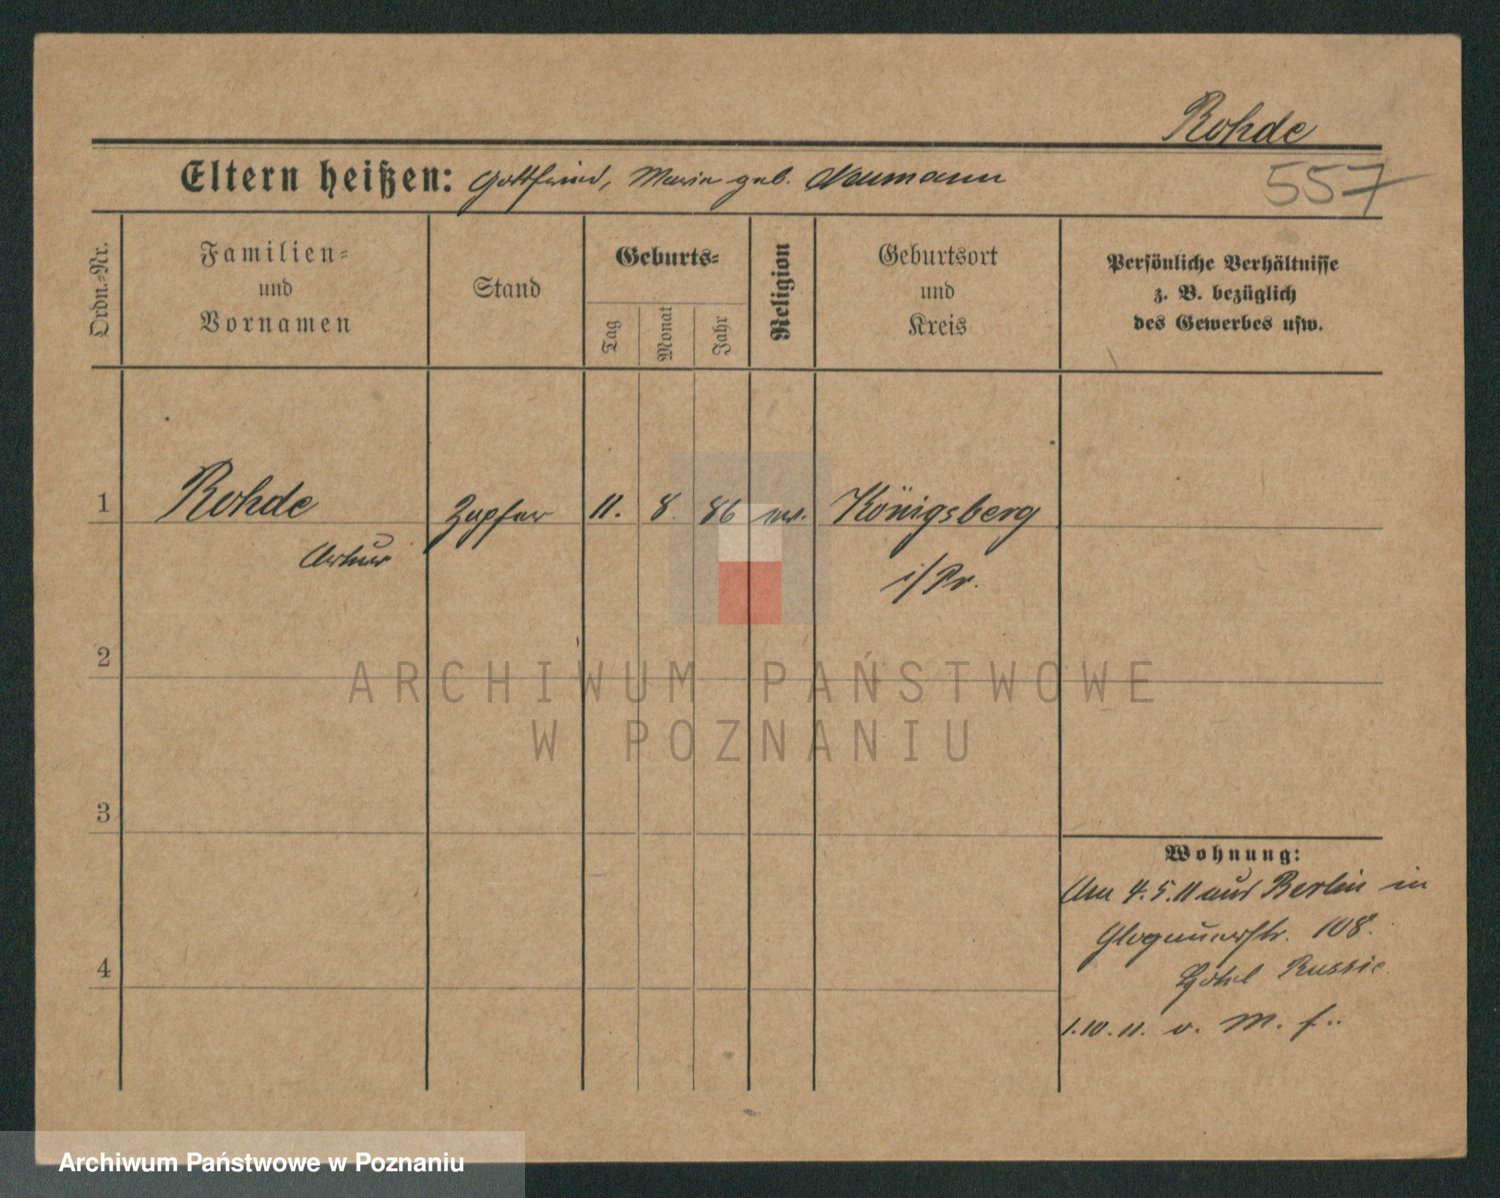 Rohde
Eltern heißen: Gottfried, Maria geb. Neumann
557
Ordn.-Nr.
Familien-
und
Vornamen
Stand
Geburts-
Tag
Monat
Jahr
Religion
Geburtsort
und
Kreis
Persönliche Verhältnisse
z. B. bezüglich
des Gewerbes usw.
1
Rohde
Artur
Zapfer
11.
8.
86
ev.
Königsberg
i/Pr.
2
ARCHIWUM PAŃSTWOWE
W POZNANIU
3
Wohnung:
Am 4.5.11 aus Berlin in
Glogauerstr. 108.
Hôtel Russie
4
1.10.11. v. M. f..
Archiwum Państwowe w Poznaniu